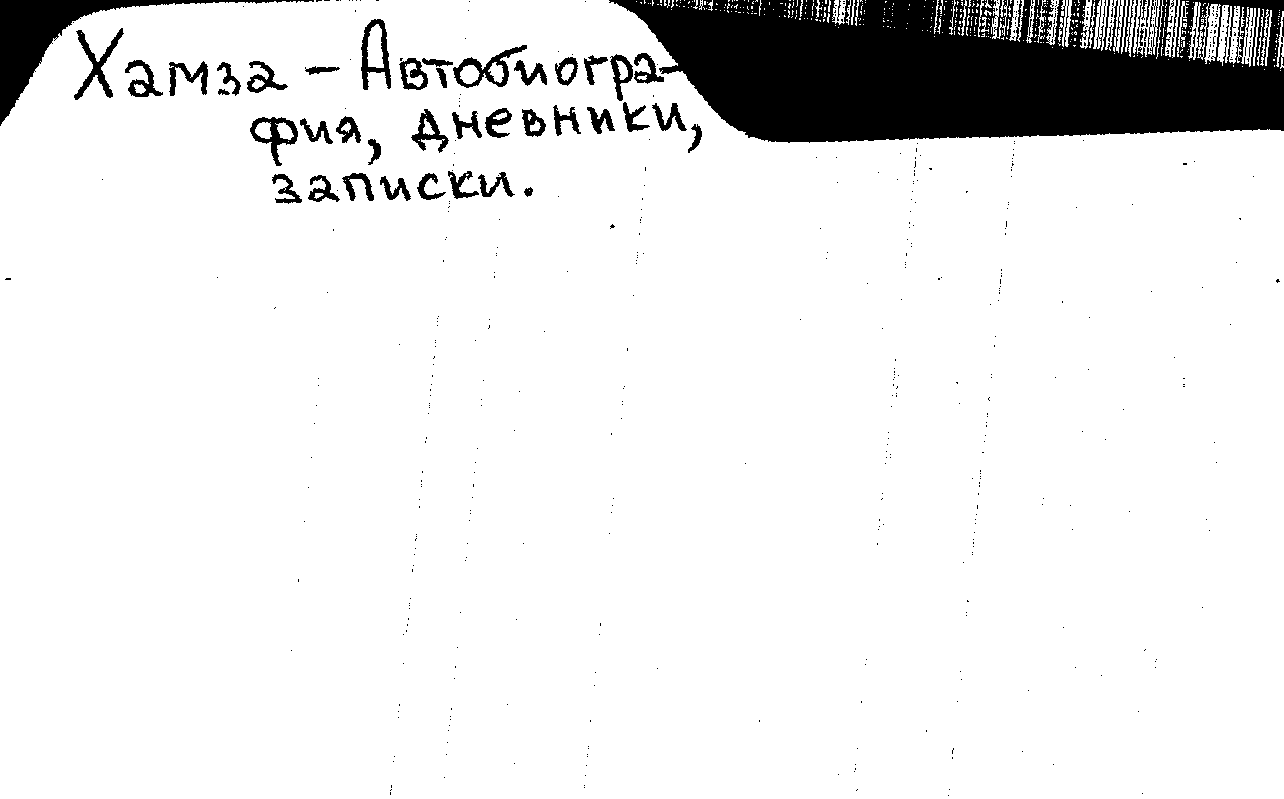 Хамза - Автобиогра-
фия, дневники,
записки.